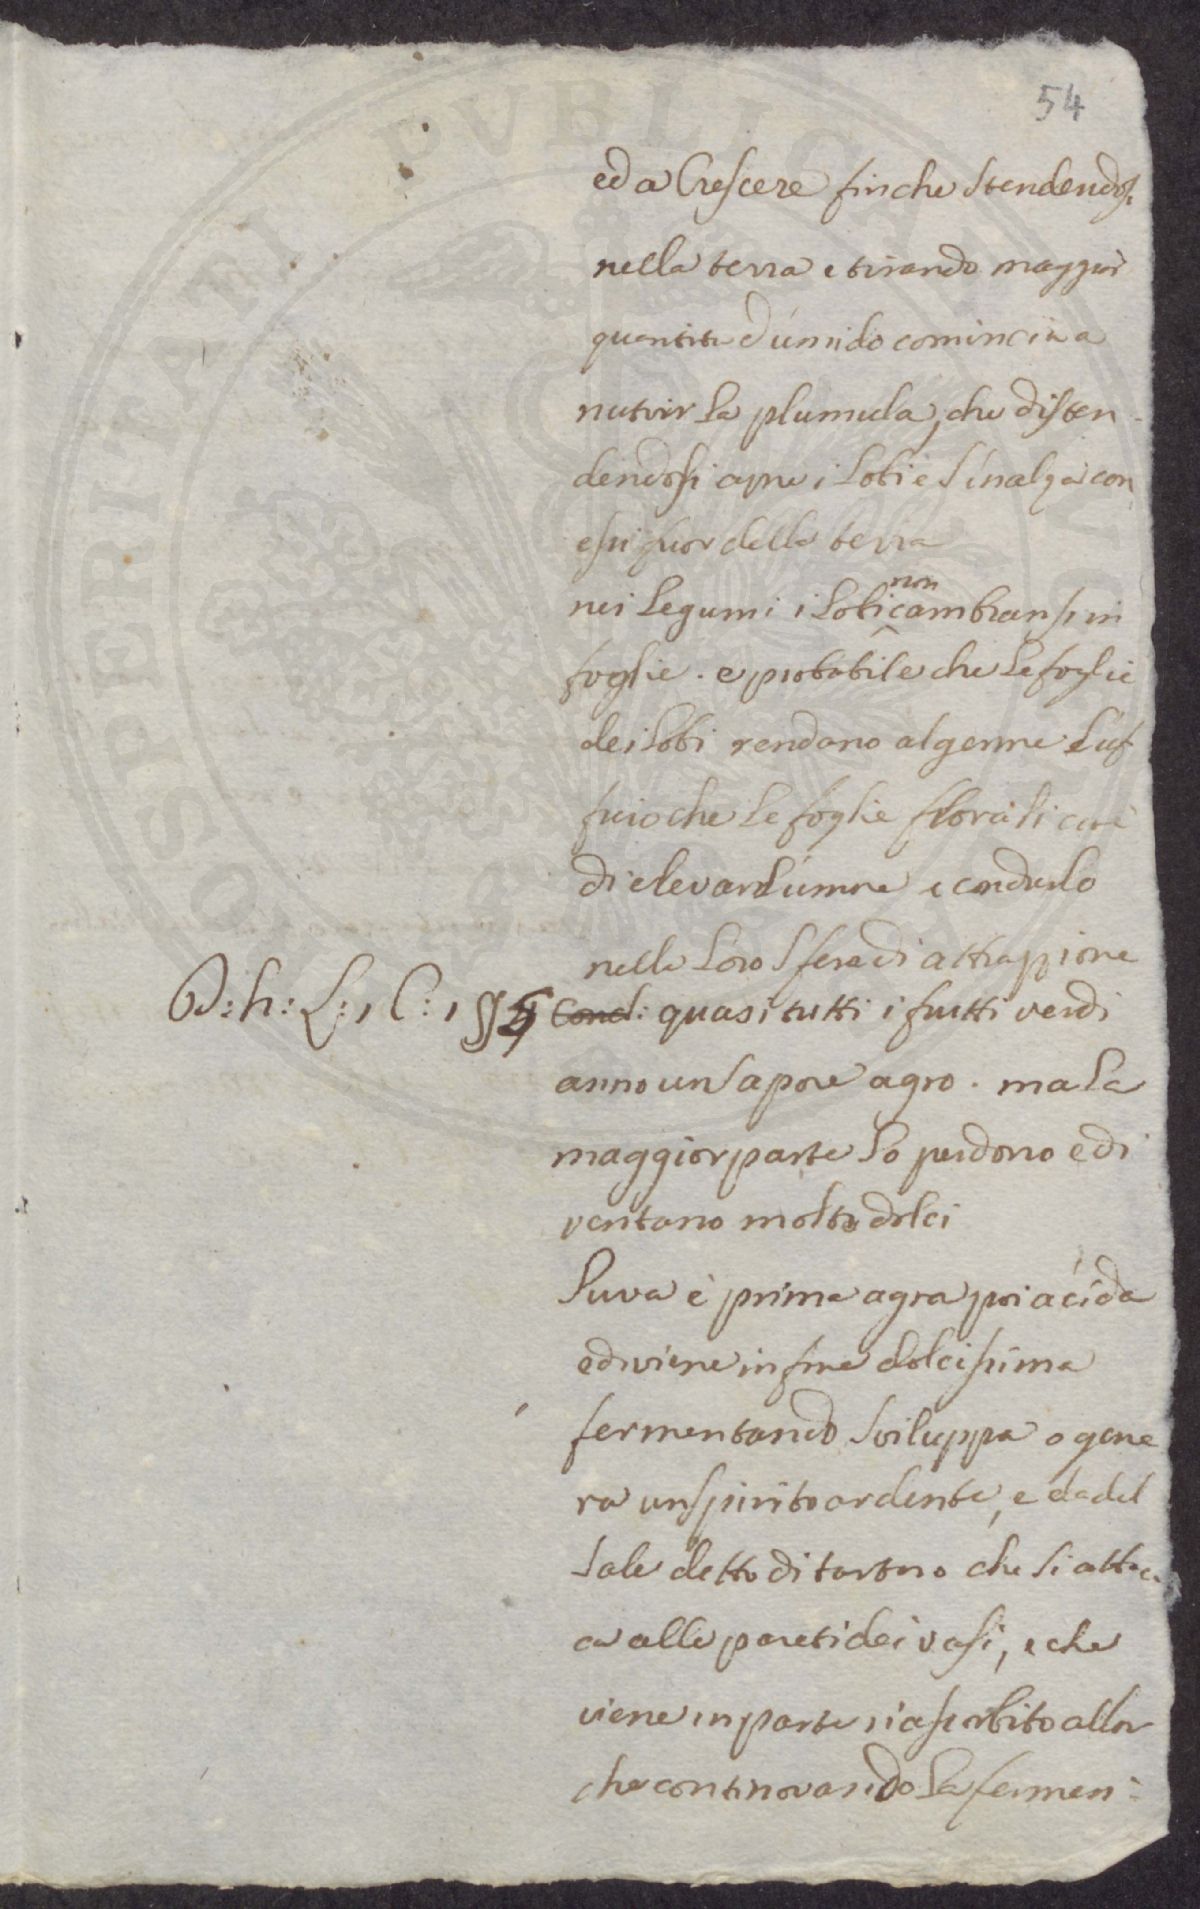 54
ed a Crescere finche stendendosi
nella terra e tirando maggior
quantita d'umido comincia a
nutrir la plumula, che disten-
dendosi apre i Lobi e s'inalza con
essi fuor della terra
nei Legumi i Lobi non cambiansi in
foglie. e probabile che le foglie
dei Lobi rendano al germe l'uf-
ficio che le foglie florali cioè
di elevar l'umore e condurlo
nella loro sfera di attrazione
P: h: L: 1 C: 1 §§ 4 Cond: quasi tutti i frutti verdi
anno un sapore agro. ma la
maggior parte lo perdono e di
ventano molto dolci
l'uva è prima agra poi acida
e diviene in fine dolcissima
fermentando sviluppa o gene
ra un spirito ardente, e da del
sale detto di tartaro che si attac-
ca alle pareti dei vasi, e che
viene in parte riassorbito allor
che continovando la fermen-